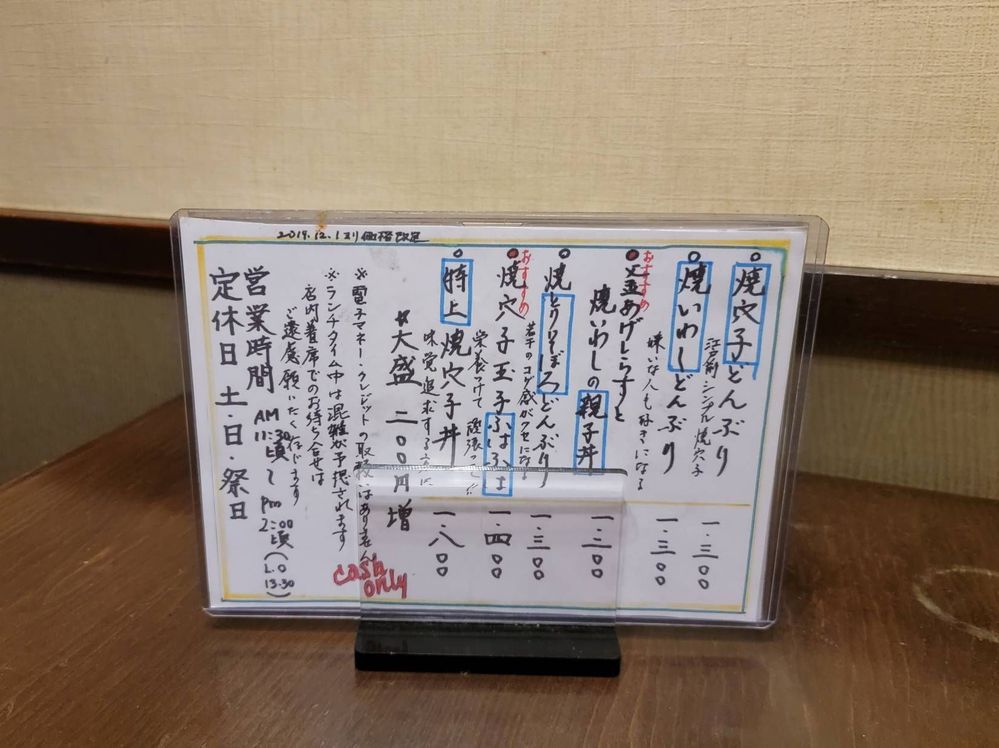 2019.12.1より価格改定
焼穴子どんぶり
江戸前シンプル焼穴子
一.三〇〇
焼いわしどんぶり
嫌いな人も好きになる
一.三〇〇
おすすめ
釜あげしらすと
焼いわしの親子丼
一.三〇〇
焼とりそぼろどんぶり
若干のコゲ感がクセになる
一.三〇〇
おすすめ
焼穴子玉子ふはふは
栄養つけて頑張って!!
一.四〇〇
特上焼穴子丼
味覚追求する
一.八〇〇
大盛 二〇〇円増
※電子マネー・クレジットの取扱はありません
cash only
※ランチタイム中は混雑が予想されます
店内着席でのお待ち合せは
ご遠慮願いたく存じます
営業時間 AM 11:30頃〜Pm 2:00頃(L.O 13.30)
定休日 土・日・祭日